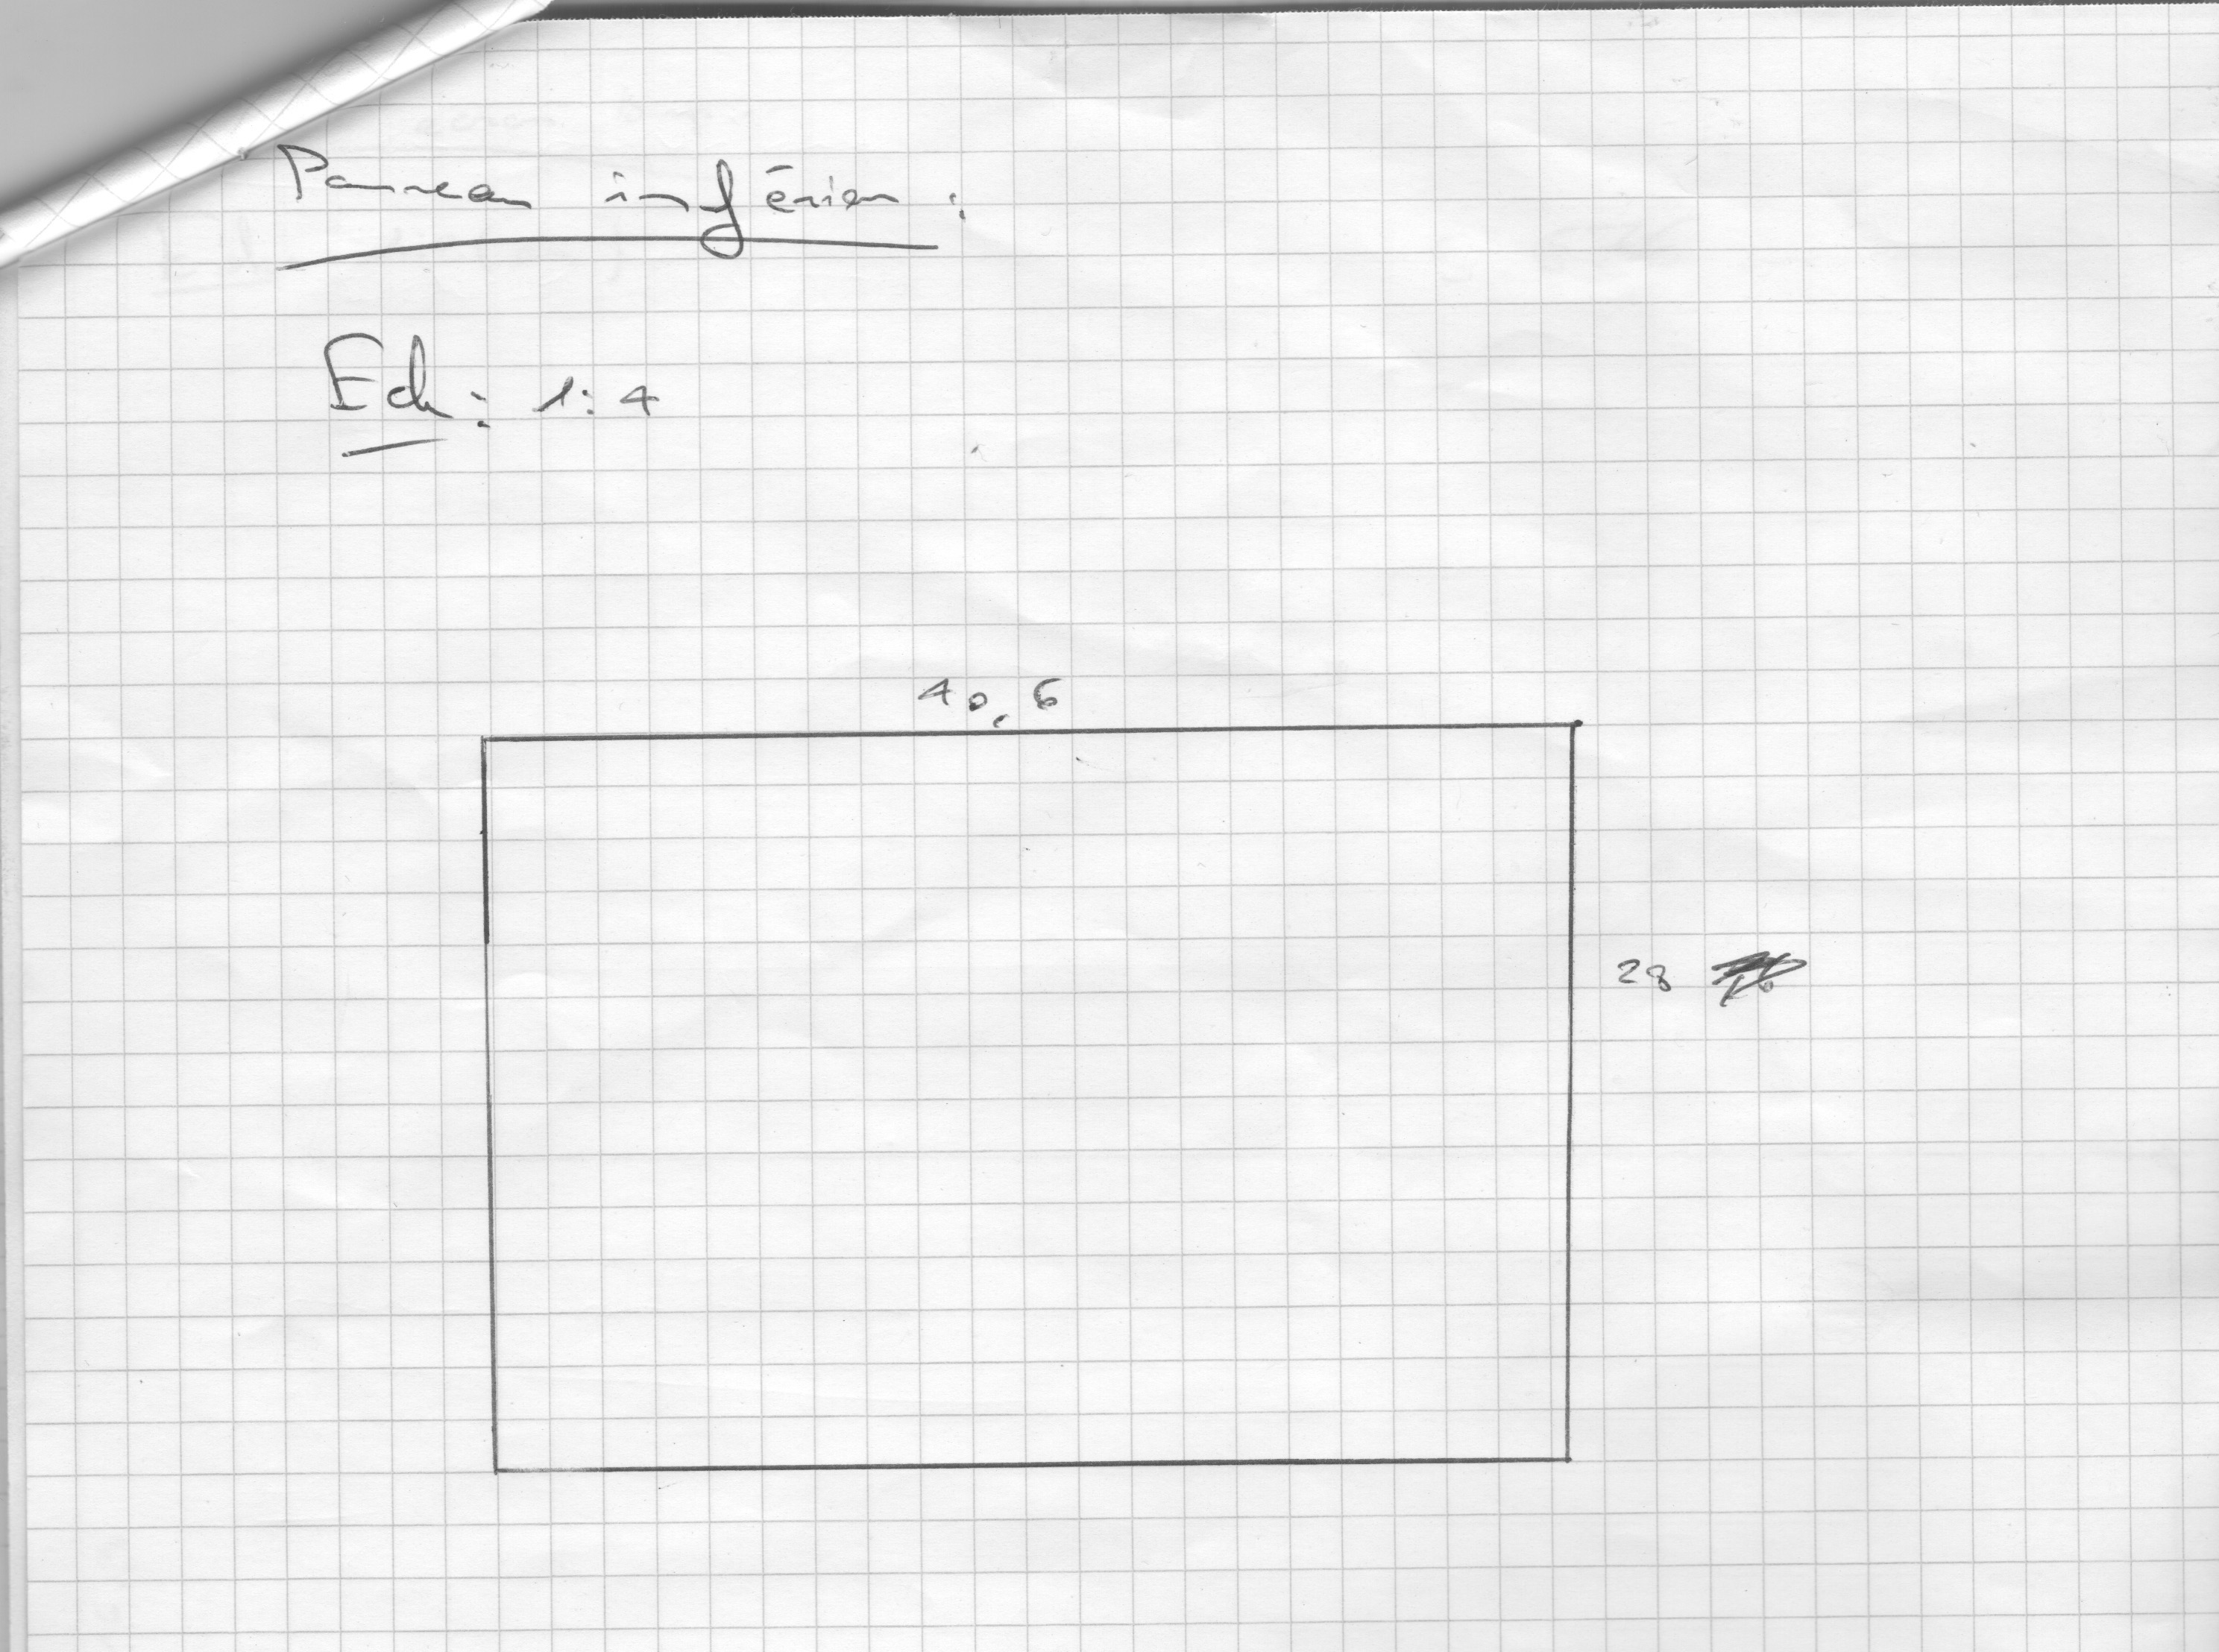 Panneau inférieur :
Ech : 1:4
40,6
28